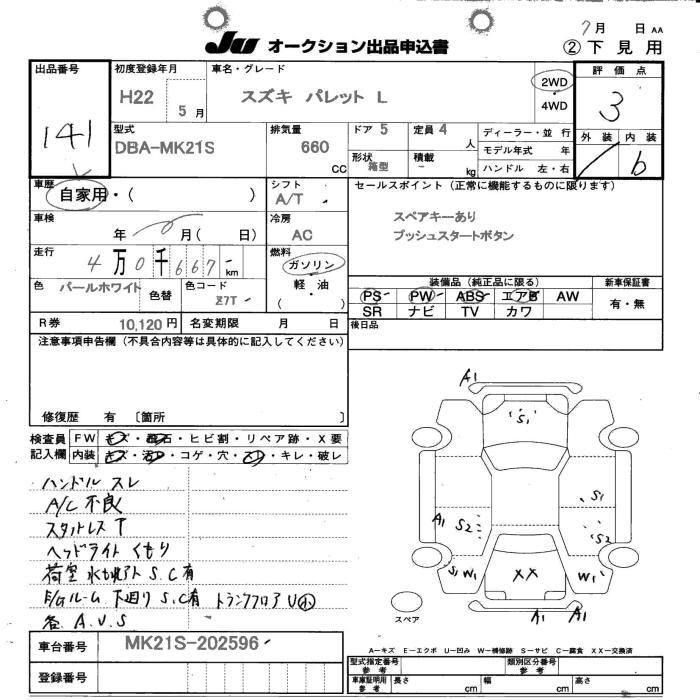 7月 日 AA
JU オークション出品申込書
②下見用
出品番号
141
初度登録年月
H22 5月
車名・グレード
スズキ パレット L
2WD
4WD
評価点
3
外装 内装
b
型式
DBA-MK21S
排気量
660
CC
ドア 5
定員 4
人
形状
箱型
積載
-
kg
ディーラー・並 行
モデル年式 年
ハンドル 左・右
車歴
自家用・( )
シフト
A/T
車検
年 月( 日)
冷房
AC
走行
4万0千667 km
燃料
ガソリン
軽・油
色
パールホワイト
色替
色コード
Z7T
R券
10,120円
名変期限 月 日
セールスポイント (正常に機能するものに限ります)
スペアキーあり
プッシュスタートボタン
装備品 (純正品に限る)
PS PW ABS エアB AW
SR ナビ TV カワ
新車保証書
有・無
後日品
注意事項申告欄 (不具合内容等は具体的に記入してください)
修復歴 有 〔箇所 〕
検査員
記入欄
FW キズ・飛石・ヒビ割・リペア跡・X要
内装 キズ・汚れ・コゲ・穴・スレ・キレ・破レ
ハンドル スレ
A/C 不良
スタットレス T
ヘッドライト くもり
S.C有
E/Gルーム 下廻り S.C有 トランクフロア
各 A.U.S
A1
S1
S1
A1 S2
S2
S1 W1
XX
W1
A1 A1
スペア
A―キズ E―エクボ U―凹み W―補修跡 S―サビ C―腐食 XX―交換済
車台番号
MK21S-202596
登録番号
型式指定番号
参考
類別区分番号
参考
車庫証明用
参考
長さ cm
幅 cm
高さ cm